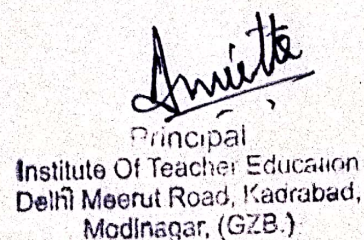 Principal
Institute Of Teacher Education
Delhi Meerut Road, Kadrabad,
Modinagar, (GZB.)